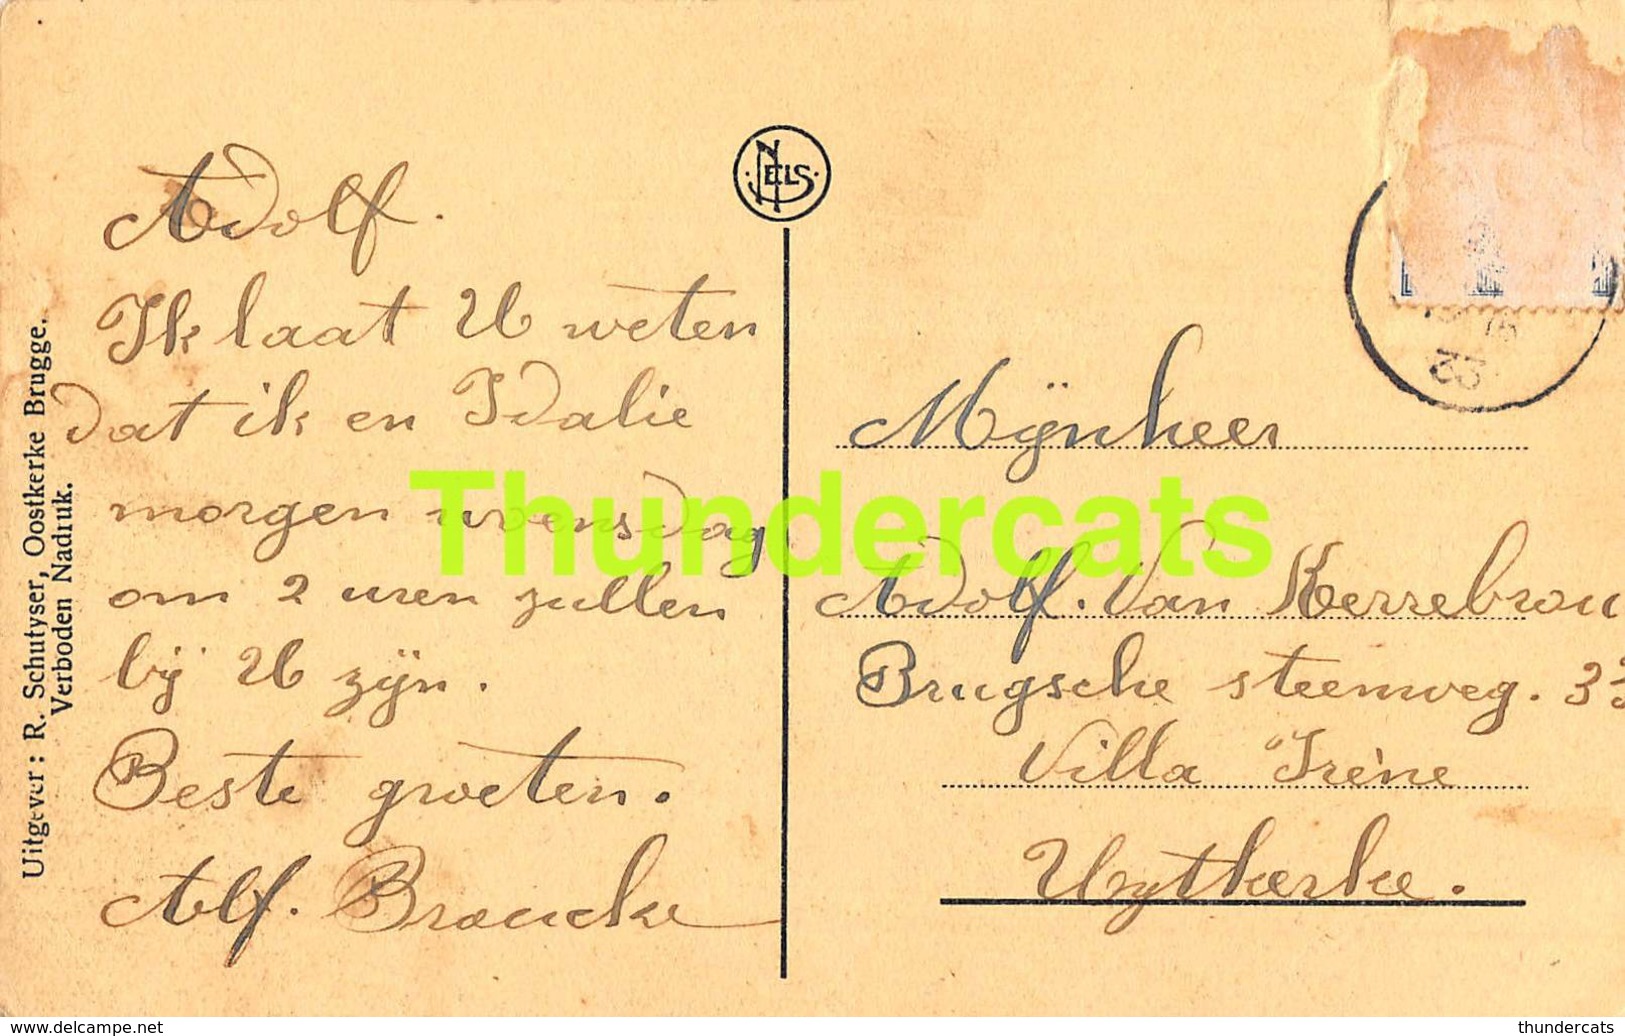 Uitgever: R. Schutyser, Oostkerke Brugge.
Verboden Nadruk.
NELS
Adolf.
Ik laat U weten
dat ik en Idalie
morgen woensdag
om 2 uren zullen
bij U zijn.
Beste groeten.
Alf. Broucke
Mijnheer
Adolf. Van Kerrebrou
Brugsche steenweg. 33
Villa Irène
Uytkerke.
Thundercats
www.delcampe.net
thundercats